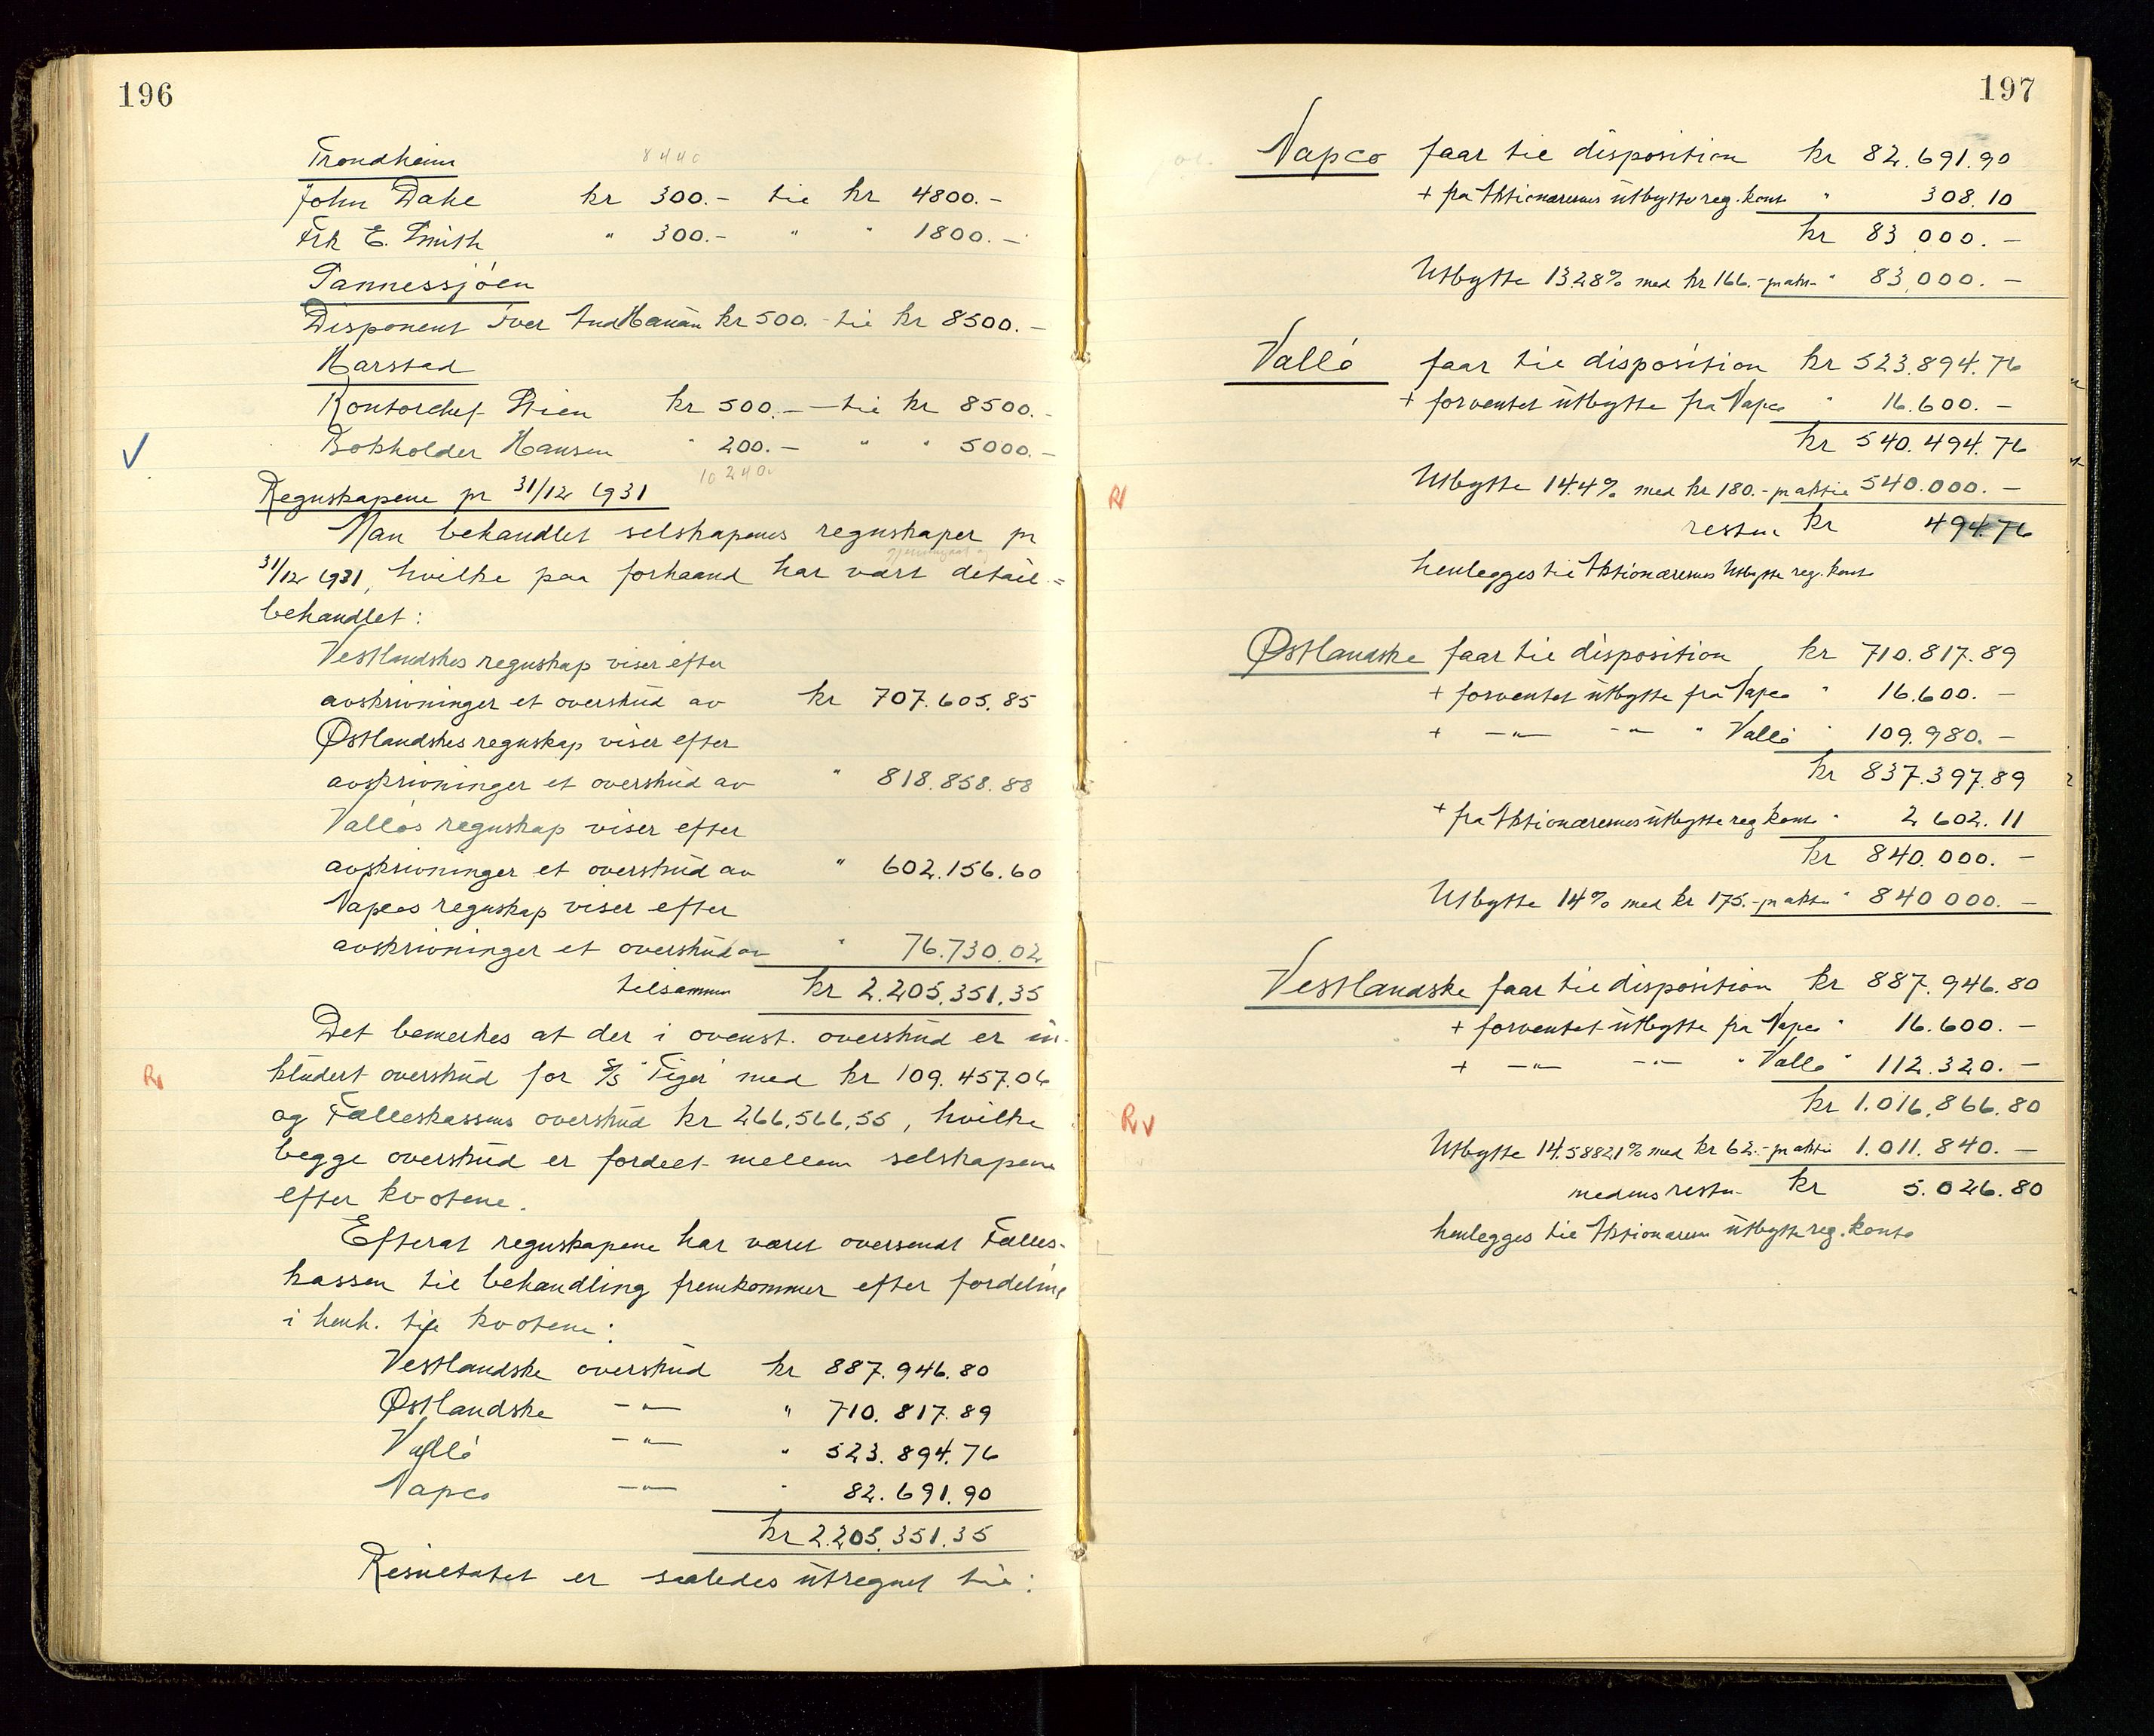 196
Trondheim
8440
John Dahl kr 300.- til kr 4800.-
Frk E. Smith " 300.- " " 1800.-
Sannessjøen
Disponent Iver kr 500.- til kr 8500.-
Harstad
Kontorchef Stien kr 500.- til kr 8500.-
Bokholder Hansen " 200.- " " 5000.-
10240
Regnskapene pr 31/12 1931
Man behandlet selskapenes regnskaper pr
31/12 1931, hvilke paa forhaand har vært detail=
behandlet:
Vestlandskes regnskap viser efter
avskrivninger et overskud av kr 707.605.85
Østlandskes regnskap viser efter
avskrivninger et overskud av " 818.858.88
Valløs regnskap viser efter
avskrivninger et overskud av " 602.156.60
Napcos regnskap viser efter
avskrivninger et overskud av " 76.730.02
tilsammen kr 2.205.351.35
Det bemerkes at der i ovenst. overskud er in-
kludert overskud for S/S "Tiger" med kr 109.457.06
og Felleskassens overskud kr 266.566,55, hvilke
begge overskud er fordelt mellem selskapene
efter kvotene.
Efterat regnskapene har været oversendt Felles-
kassen til behandling fremkommer efter fordeling
i henh. til kvotene:
Vestlandske overskud kr 887.946.80
Østlandske -"- " 710.817.89
Vallø -"- " 523.894.76
Napco -"- " 82.691.90
kr 2.205.351.35
Resultatet er saaledes utregnet til:
197
Napco faar til disposition kr 82.691.90
+ fra Aktionærenes utbytte reg. konto " 308.10
kr 83 000.-
Utbytte 13.28% med kr 166.- pr aktie " 83.000.-
Vallø faar til disposition kr 523.894.76
+ forventet utbytte fra Napco " 16.600.-
kr 540.494.76
Utbytte 14.4% med kr 180.- pr aktie 540.000.-
resten kr 494.76
henlegges til Aktionærenes Utbytte reg. konto
Østlandske faar til disposition kr 710.817.89
+ forventet utbytte fra Napco " 16.600.-
+ -"- -"- " Vallø " 109.980.-
kr 837.397.89
+ fra Aktionærenes utbytte reg konto " 2 602.11
kr 840.000.-
Utbytte 14% med kr 175.- pr aktie " 840 000.-
Vestlandske faar til disposition kr 887.946.80
+ forventet utbytte fra Napco " 16.600.-
+ -"- -"- " Vallø " 112.320.-
kr 1.016.866.80
Utbytte 14.58821% med kr 62.- pr aktie 1.011.840.-
medens resten kr 5.026.80
henlegges til Aktionærenes utbytte reg. konto